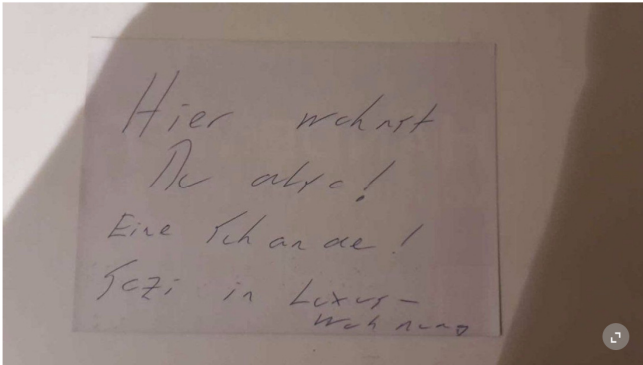 Hier wohnst
Du also!
Eine Schande!
Sozi in Luxus-
Wohnung